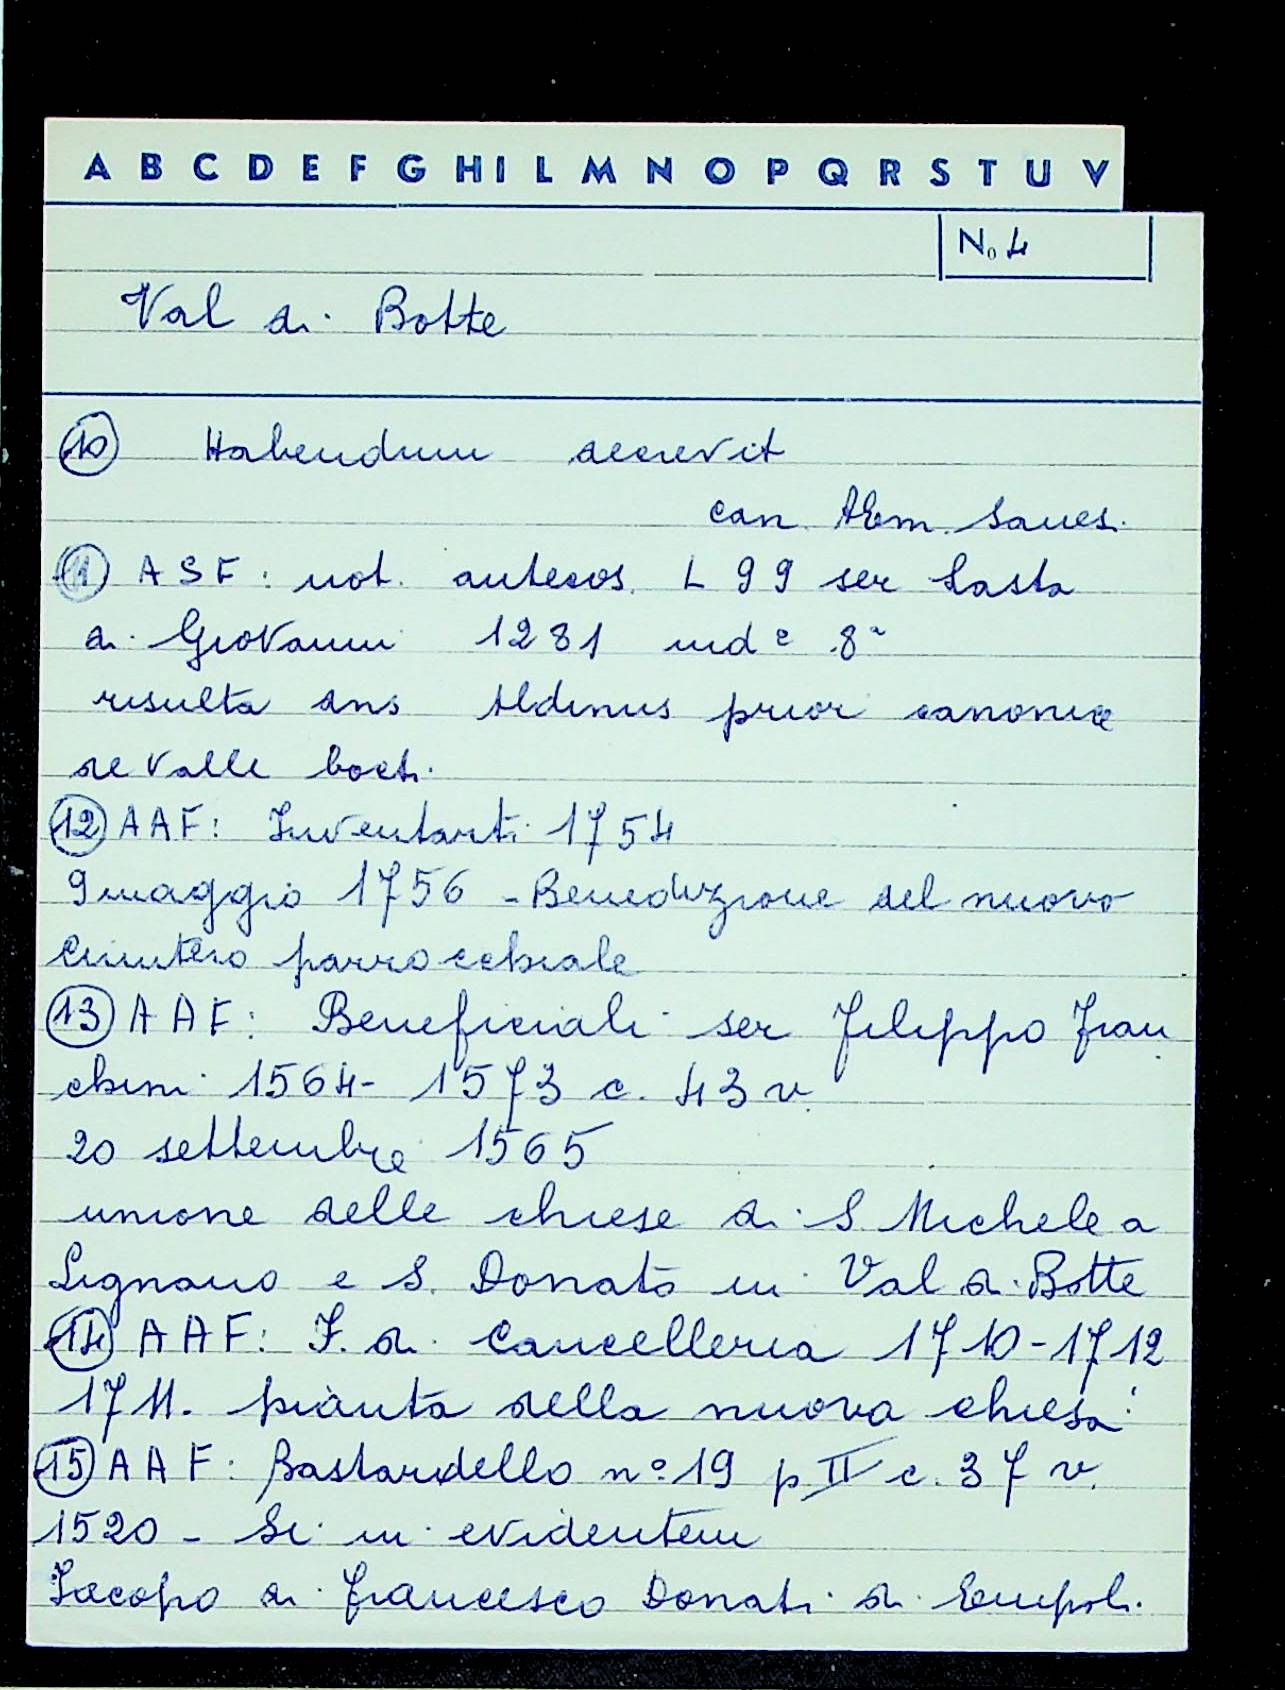 A B C D E F G H I L M N O P Q R S T U V
No 4
Val di Botte
10 Habendum decrevit
can.
11 ASF: not. antecos. L 99 ser Lasta
di Giovanni 1281 indº 8ª
risulta dns Aldinus prior canonice
de Valle bocti.
12 AAF: Inventari 1754
9 maggio 1756 - Benedizione del nuovo
cimitero parrocchiale
13 AAF: Beneficiali ser Filippo Fran
chini 1564-1573 c. 43 v.
20 settembre 1565
unione delle chiese di S. Michele a
Lignano e S. Donato in Val di Botte
14 AAF: F. di Cancelleria 1710-1712
1711. pianta della nuova chiesa!
15 AAF: Bastardello nº 19 p II c. 37 v.
1520 - Si in evidentem
Jacopo di Francesco Donati di Empoli.